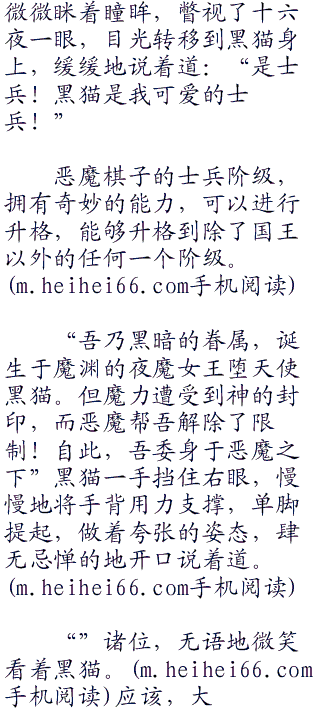 微微眯着瞳眸，瞥视了十六
夜一眼，目光转移到黑猫身
上，缓缓地说着道：“是士
兵！黑猫是我可爱的士
兵！”
恶魔棋子的士兵阶级，
拥有奇妙的能力，可以进行
升格，能够升格到除了国王
以外的任何一个阶级。
(m.heihei66.com手机阅读)
“吾乃黑暗的眷属，诞
生于魔渊的夜魔女王堕天使
黑猫。但魔力遭受到神的封
印，而恶魔帮吾解除了限
制！自此，吾委身于恶魔之
下”黑猫一手挡住右眼，慢
慢地将手背用力支撑，单脚
提起，做着夸张的姿态，肆
无忌惮的地开口说着道。
(m.heihei66.com手机阅读)
“”诸位，无语地微笑
看着黑猫。(m.heihei66.com
手机阅读)应该，大